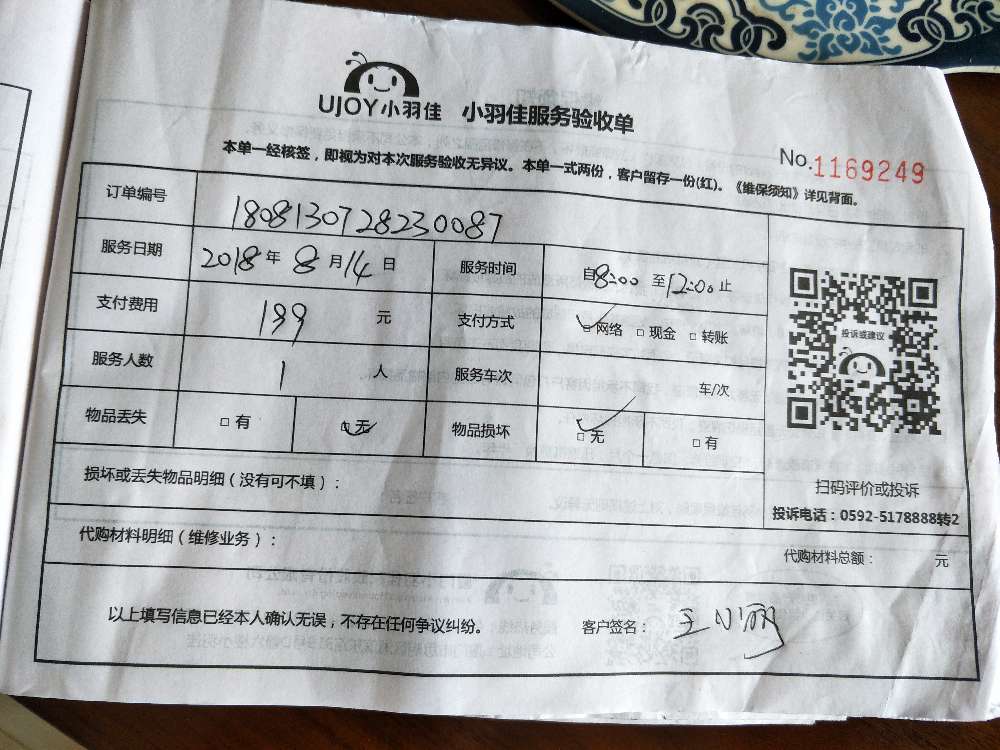 UJOY小羽佳 小羽佳服务验收单
本单一经核签，即视为对本次服务验收无异议。本单一式两份，客户留存一份(红)。《维保须知》详见背面。
No.1169249
订单编号 1808130728230087
服务日期 2018年8月14日 服务时间 自8:00至12:00止
支付费用 199元 支付方式 ☑网络 □现金 □转账
服务人数 1人 服务车次 车/次
物品丢失 □有 ☑无 物品损坏 ☑无 □有
投诉或建议
扫码评价或投诉
投诉电话：0592-5178888转2
损坏或丢失物品明细（没有可不填）：
代购材料明细（维修业务）： 代购材料总额： 元
以上填写信息已经本人确认无误，不存在任何争议纠纷。 客户签名：王小丽